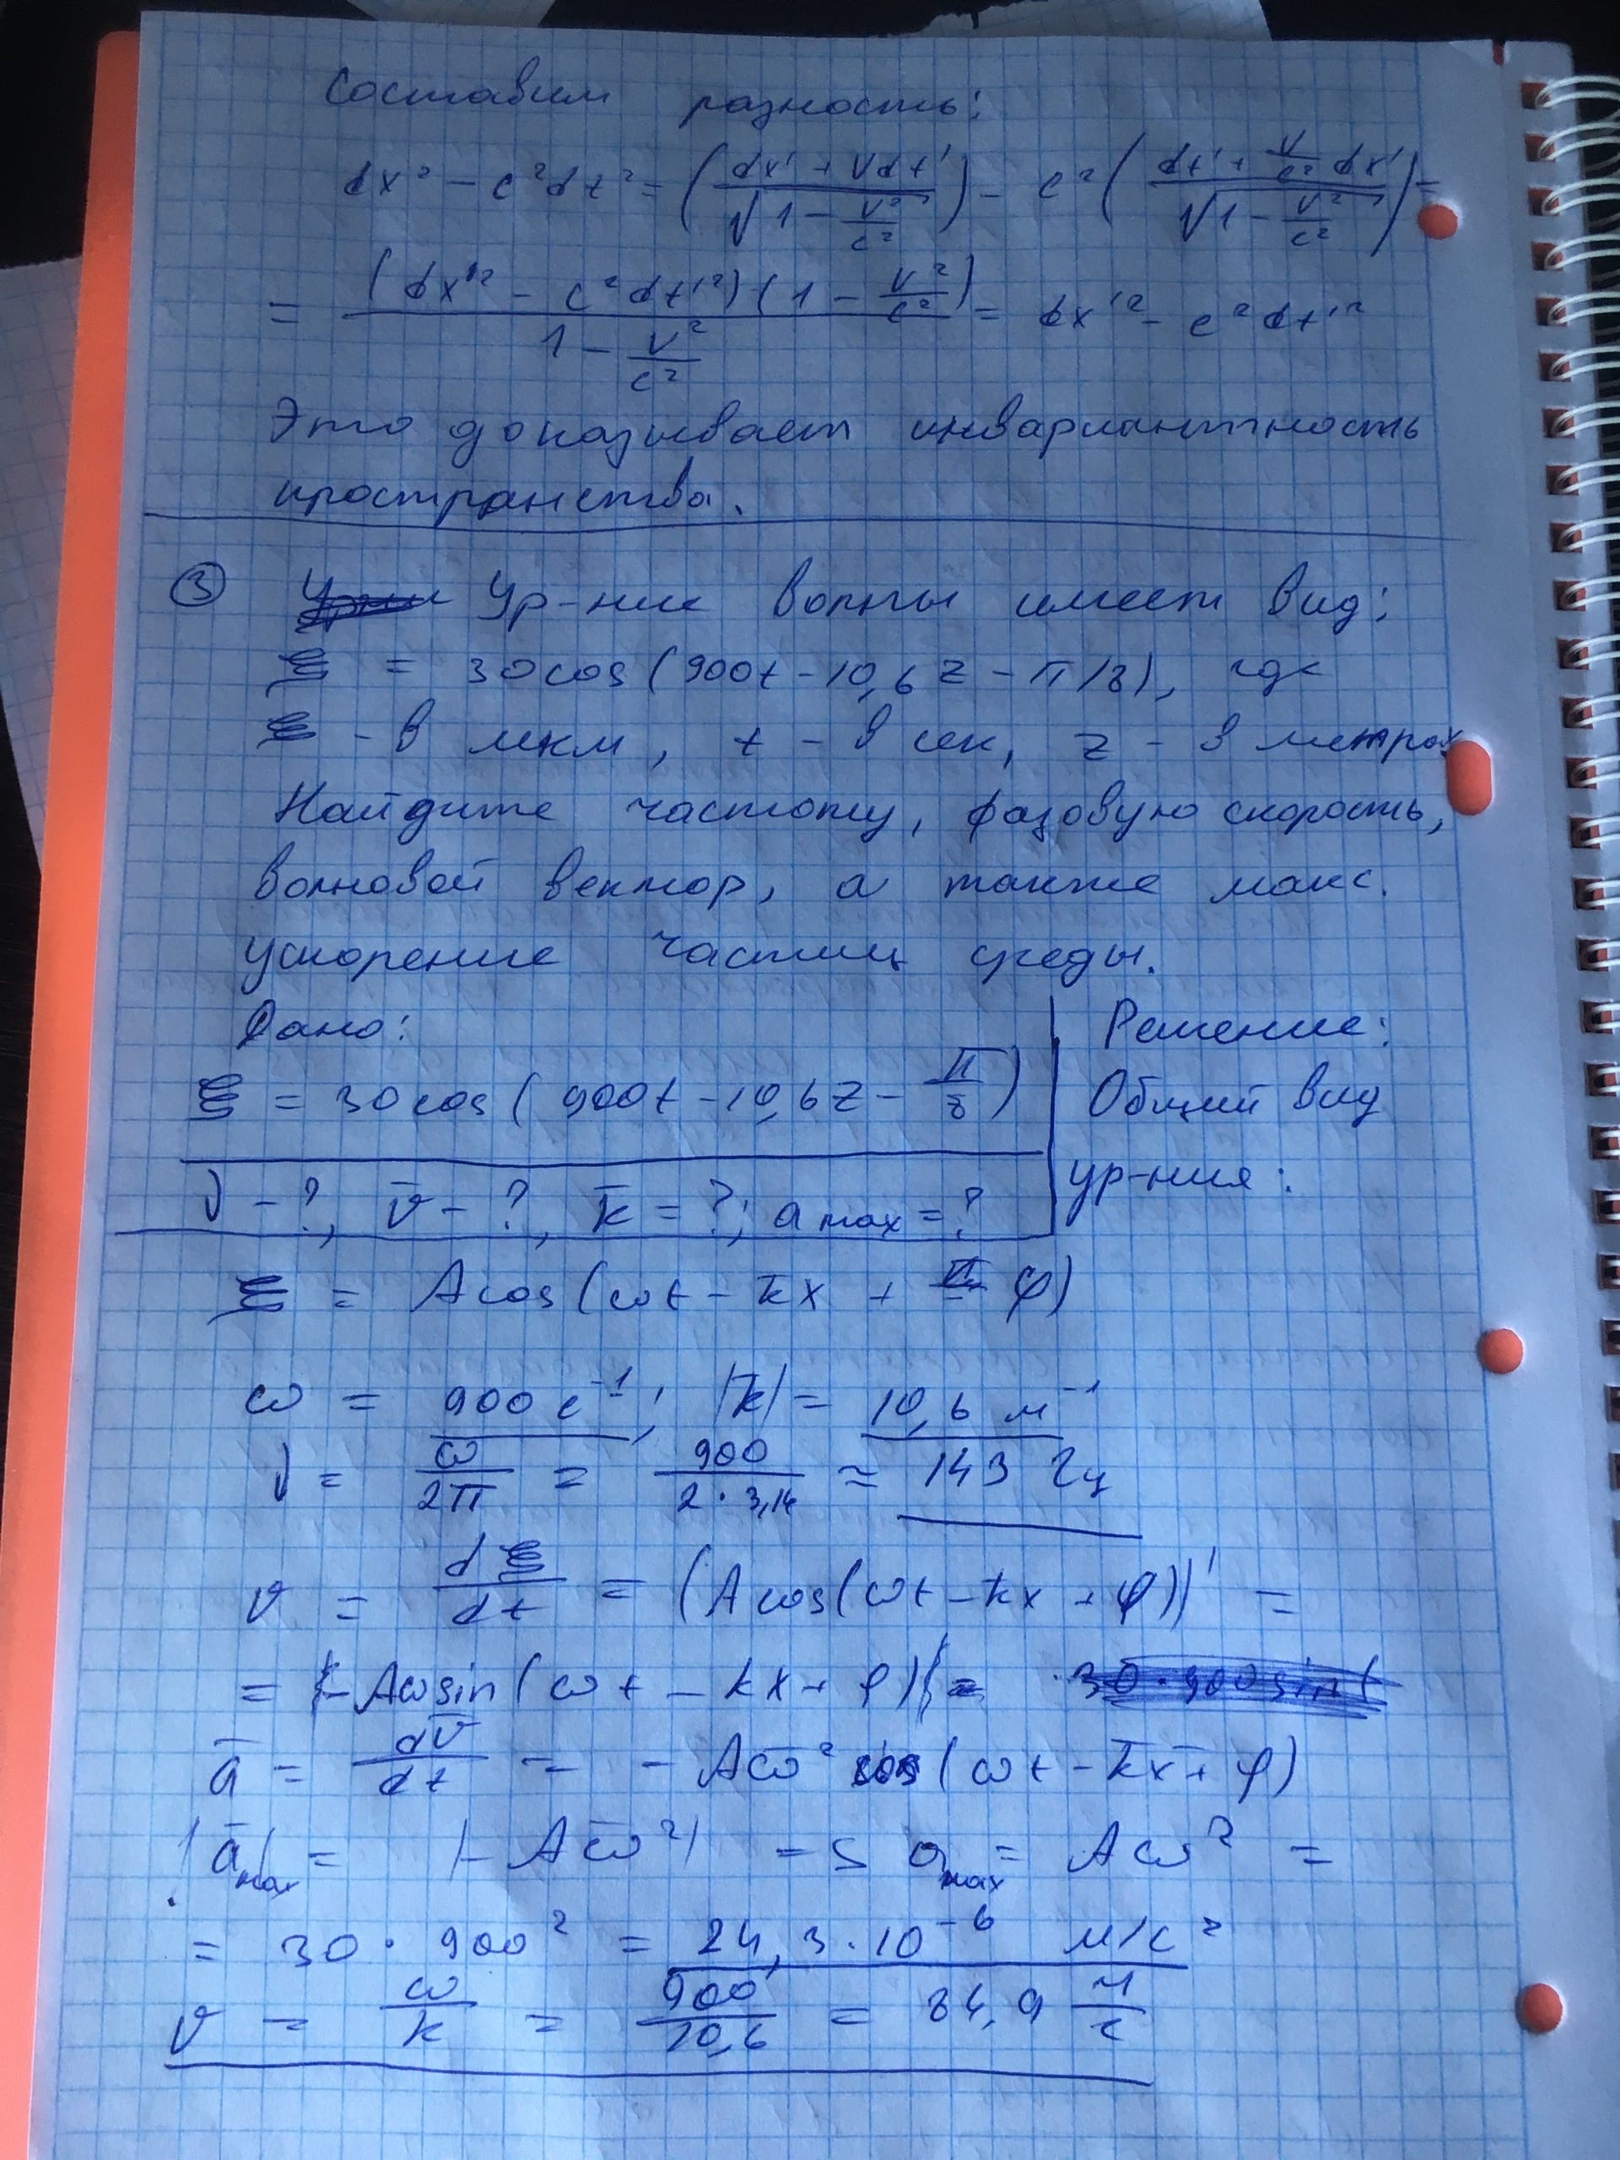 Составим разность:
dx² - c²dt² = (dx' + Vdt' / √(1 - V²/c²)) - c² (dt' + V/c² dx' / √(1 - V²/c²)) =
= (dx'² - c²dt'²)(1 - V²/c²) / (1 - V²/c²) = dx'² - c²dt'²
Это доказывает инвариантность
пространства.
③ Ур-ние волны имеет вид:
ξ = 30cos(900t - 10,6z - π/8), где
ξ - в мкм, t - в сек, z - в метрах
Найдите частоту, фазовую скорость,
волновой вектор, а также макс.
ускорение частиц среды.
Дано: Решение:
ξ = 30cos(900t - 10,6z - π/8) Общий вид
ν - ?, v̄ - ?, k̄ = ?; a max = ? ур-ния:
ξ = Acos(ωt - k̄x + φ)
ω = 900 с⁻¹; |k̄| = 10,6 м⁻¹
ν = ω/2π = 900/(2·3,14) ≈ 143 Гц
v = dξ/dt = (Acos(ωt - k̄x + φ))' =
= -Aωsin(ωt - kx + φ)
ā = dv̄/dt = - Aω̄² cos(ωt - k̄x + φ)
|ā max| = |-Aω̄²| => a max = Aω² =
= 30 · 900² = 24,3 · 10⁻⁶ м/с²
v = ω/k = 900/10,6 = 84,9 м/с